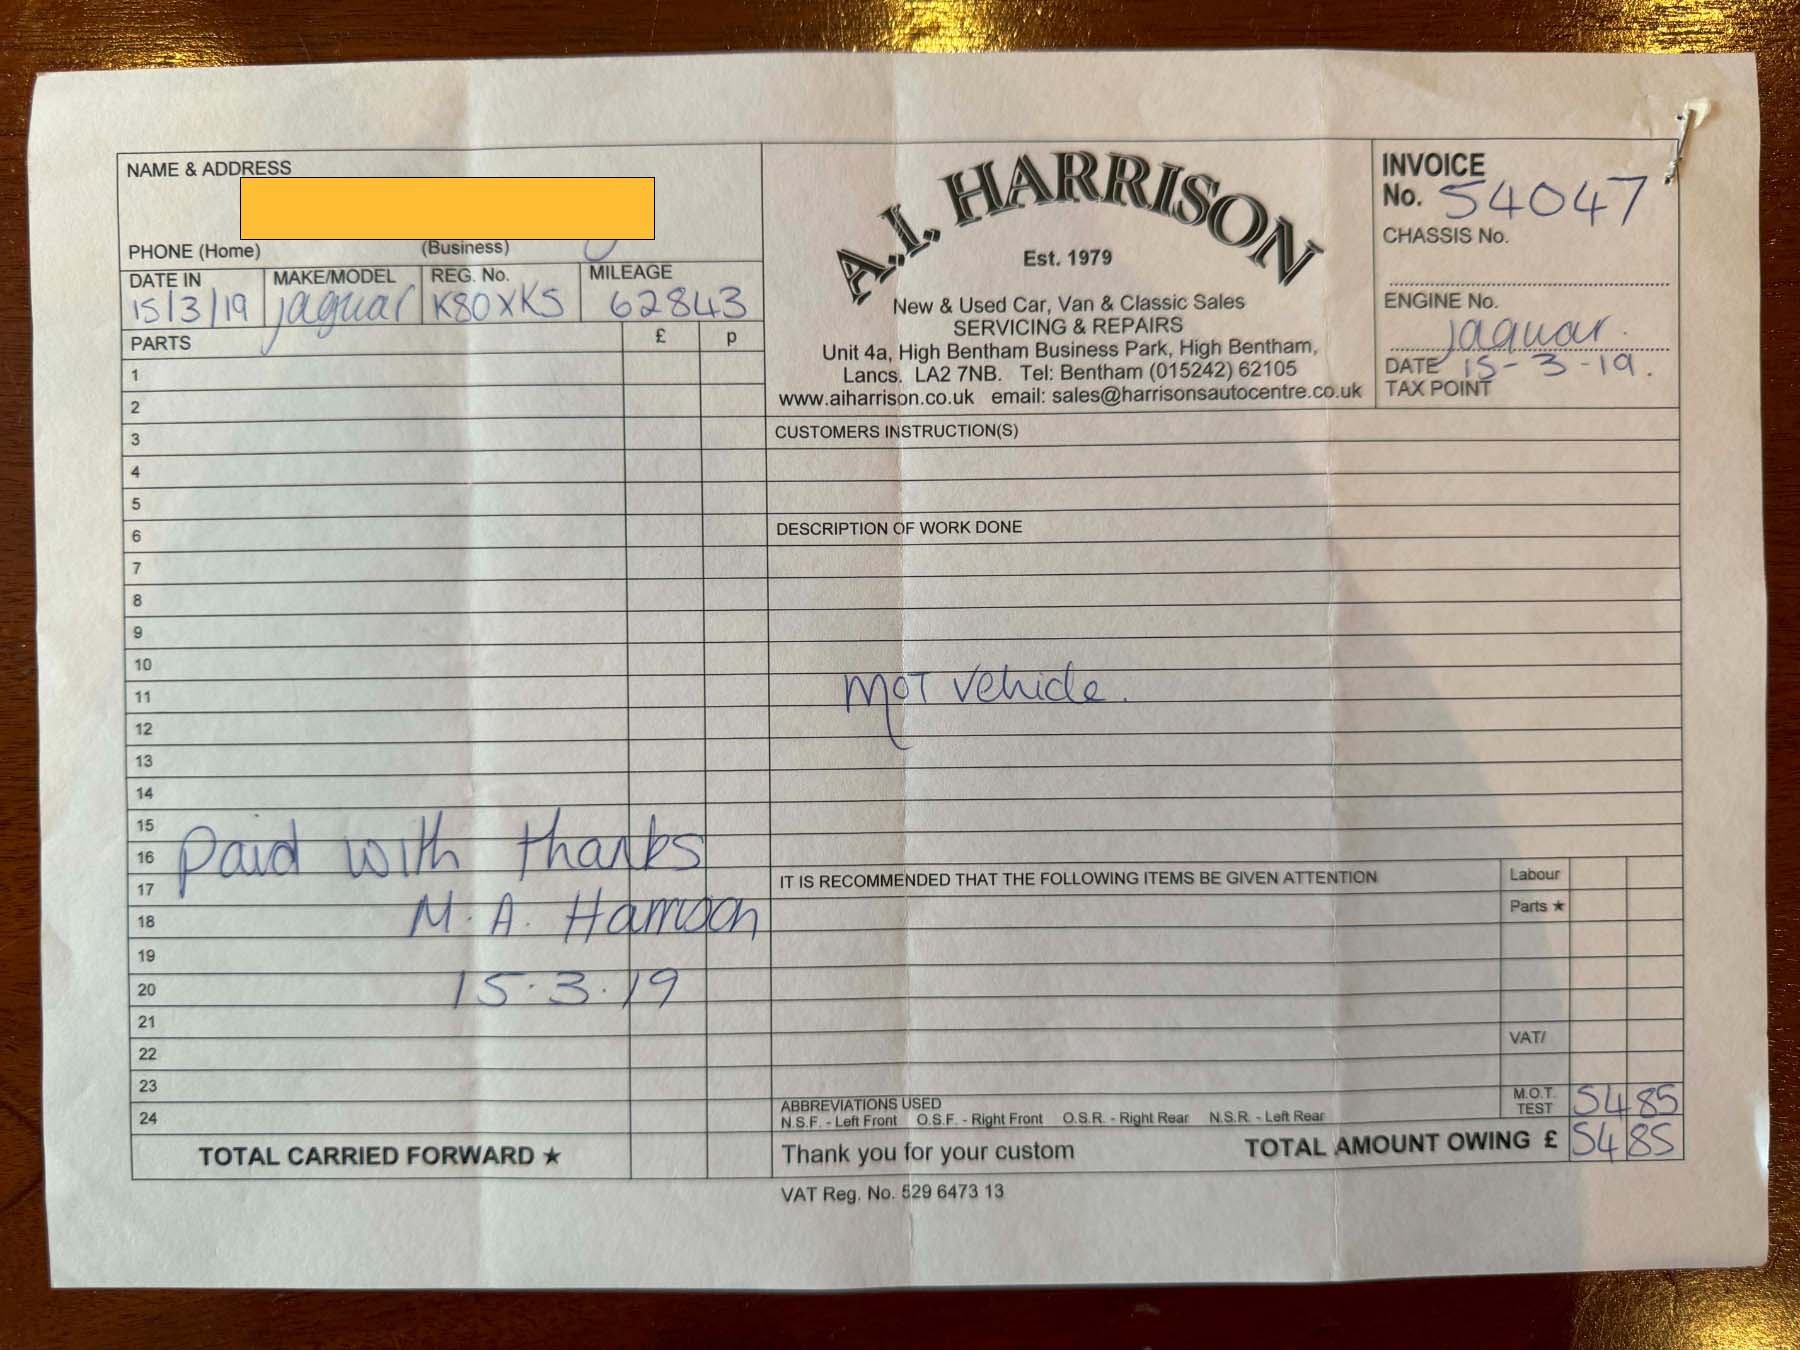 NAME & ADDRESS
PHONE (Home) (Business)
DATE IN MAKE/MODEL REG. No. MILEAGE
15/3/19 Jaguar K80XKS 62843
PARTS £ p
1
2
3
4
5
6
7
8
9
10
11
12
13
14
15
16
17
18
19
20
21
22
23
24
Paid with thanks
M. A. Harrison
15.3.19
TOTAL CARRIED FORWARD ★
A.I. HARRISON
Est. 1979
New & Used Car, Van & Classic Sales
SERVICING & REPAIRS
Unit 4a, High Bentham Business Park, High Bentham,
Lancs. LA2 7NB. Tel: Bentham (015242) 62105
www.aiharrison.co.uk email: sales@harrisonsautocentre.co.uk
INVOICE
No. 54047
CHASSIS No.
ENGINE No.
Jaguar.
DATE 15-3-19.
TAX POINT
CUSTOMERS INSTRUCTION(S)
DESCRIPTION OF WORK DONE
MOT vehicle.
IT IS RECOMMENDED THAT THE FOLLOWING ITEMS BE GIVEN ATTENTION
Labour
Parts ★
VAT/
M.O.T.
TEST 54 85
ABBREVIATIONS USED
N.S.F. - Left Front O.S.F. - Right Front O.S.R. - Right Rear N.S.R. - Left Rear
Thank you for your custom TOTAL AMOUNT OWING £ 54 85
VAT Reg. No. 529 6473 13